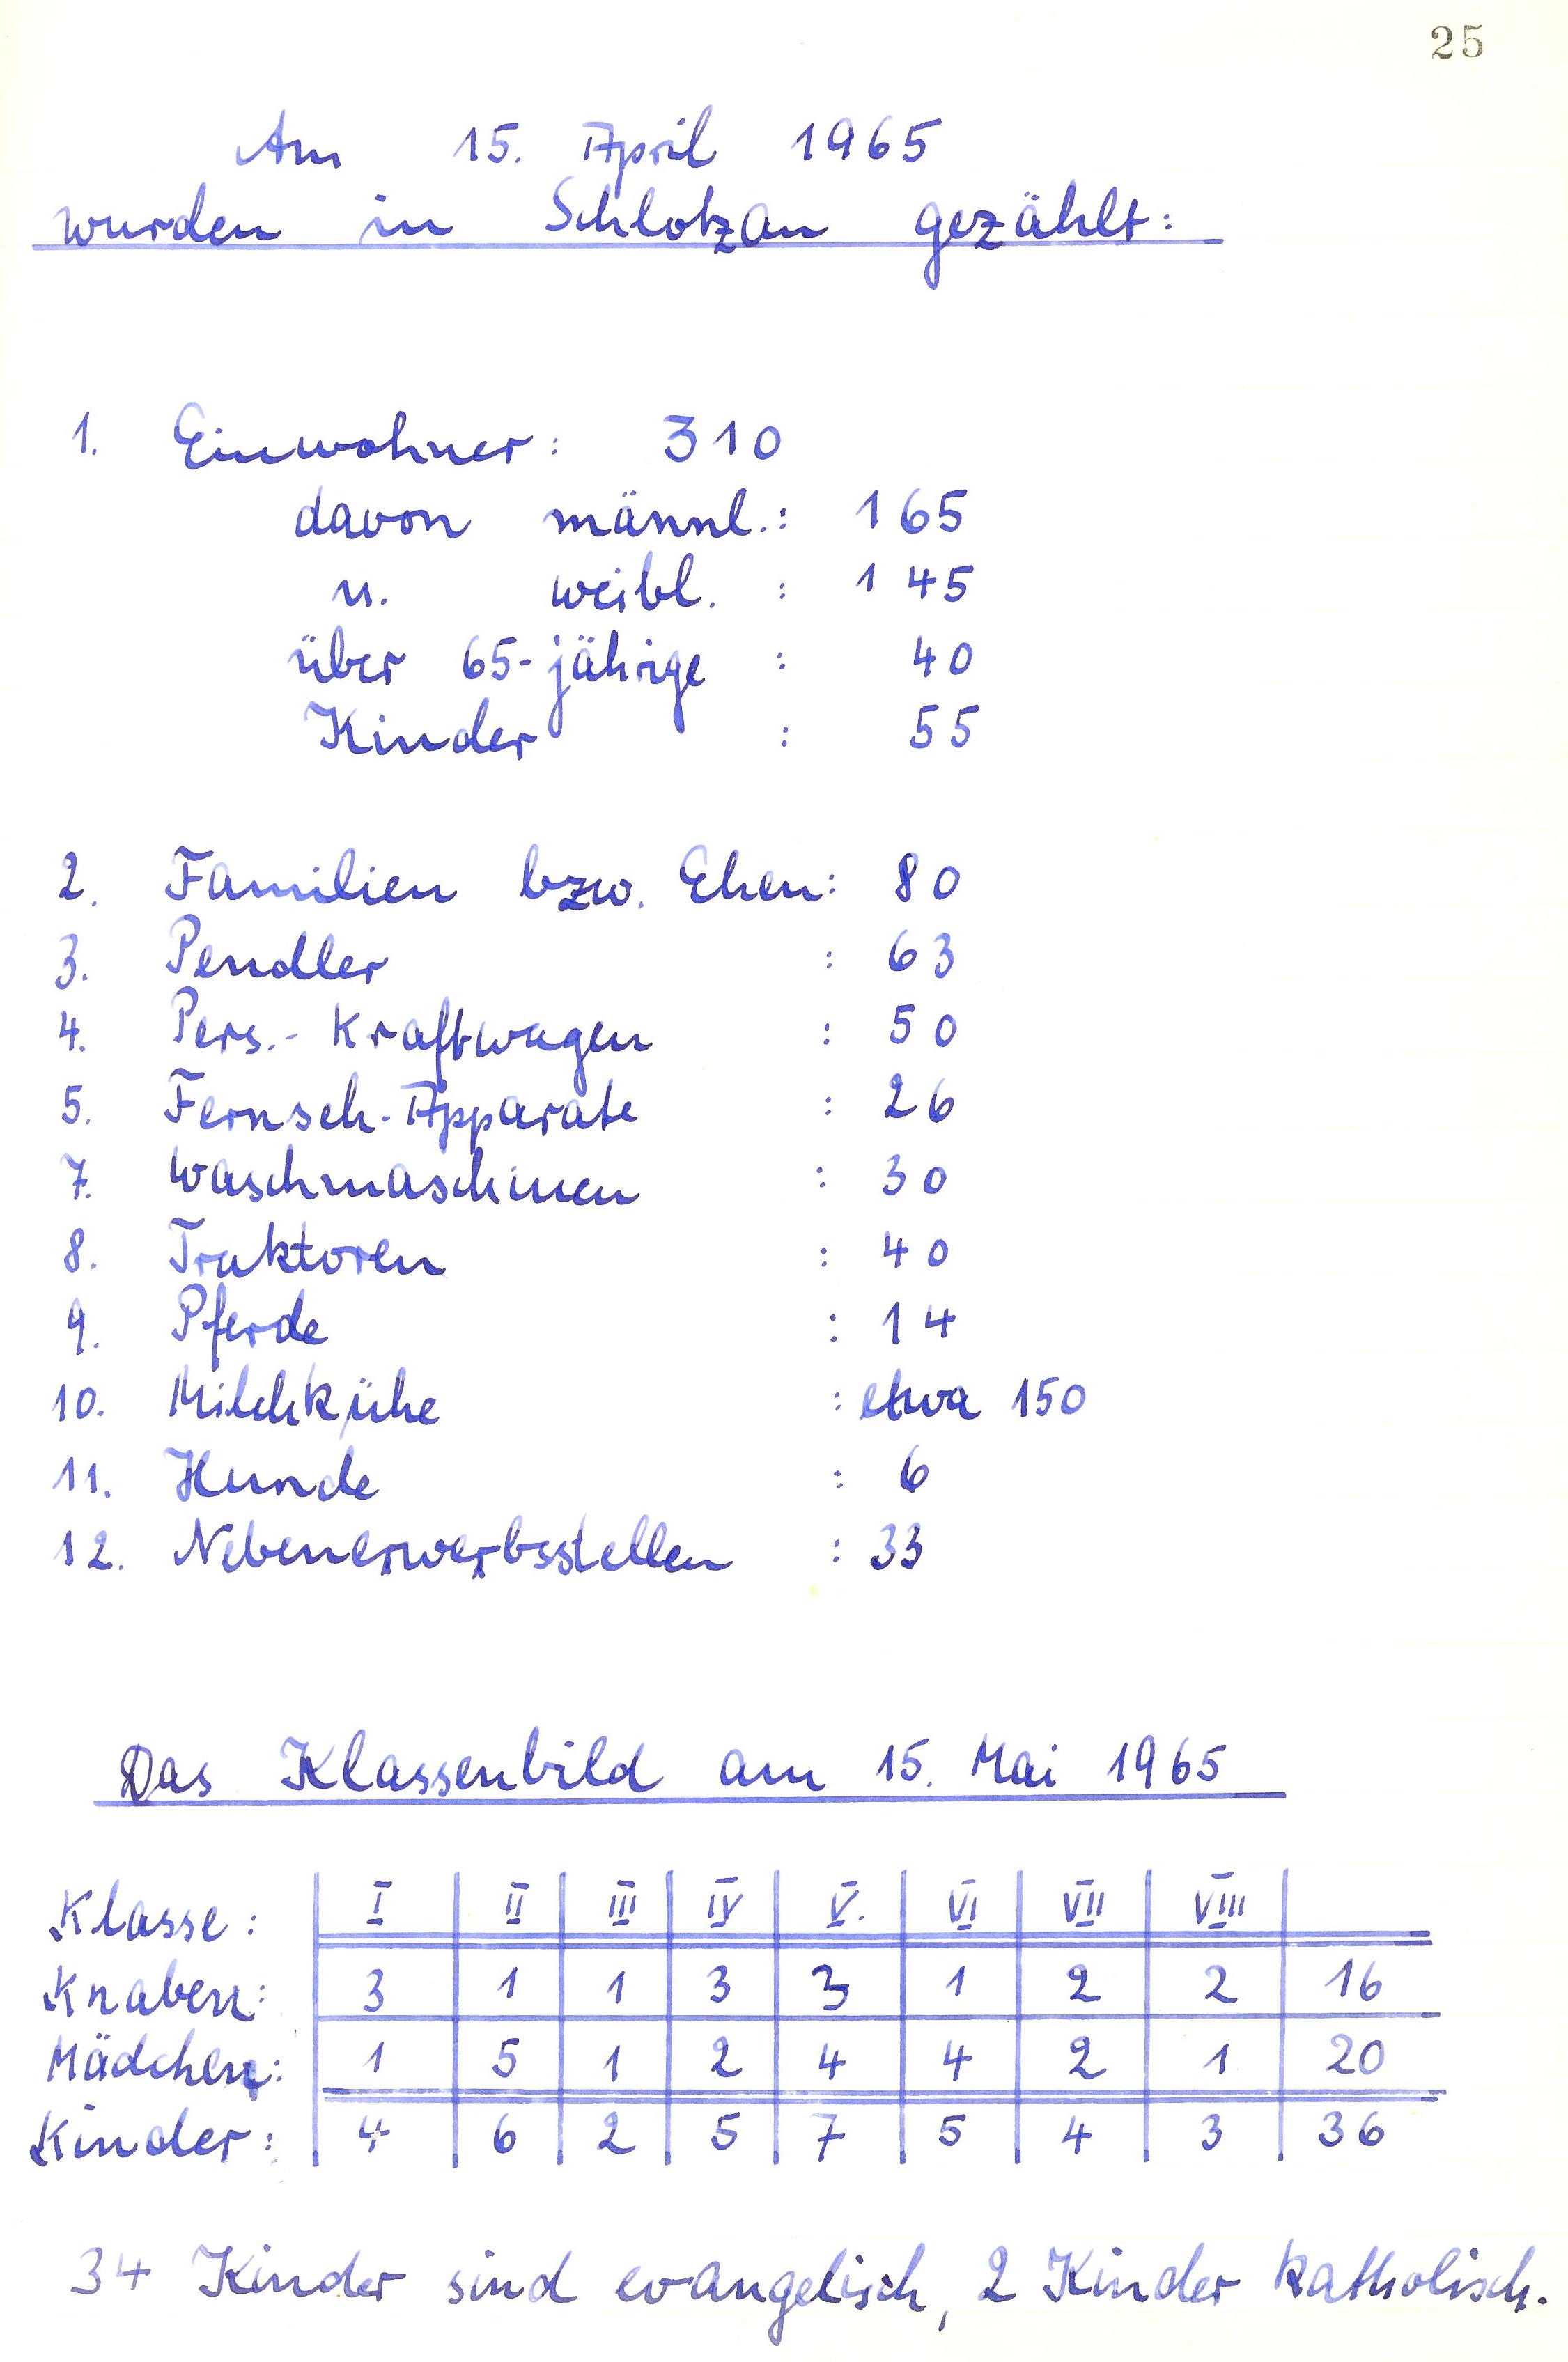 25
Am 15. April 1965
wurden in Schlotzau gezählt:
1. Einwohner: 310
davon männl.: 165
u. weibl. : 145
über 65-jährige : 40
Kinder : 55
2. Familien bzw. Ehen: 80
3. Pendler : 63
4. Pers.- Kraftwagen : 50
5. Fernseh-Apparate : 26
7. Waschmaschinen : 30
8. Traktoren : 40
9. Pferde : 14
10. Milchkühe : etwa 150
11. Hunde : 6
12. Nebenerwerbsstellen : 33
Das Klassenbild am 15. Mai 1965
Klasse: I II III IV V. VI VII VIII
Knaben: 3 1 1 3 3 1 2 2 16
Mädchen: 1 5 1 2 4 4 2 1 20
Kinder: 4 6 2 5 7 5 4 3 36
34 Kinder sind evangelisch, 2 Kinder katholisch.